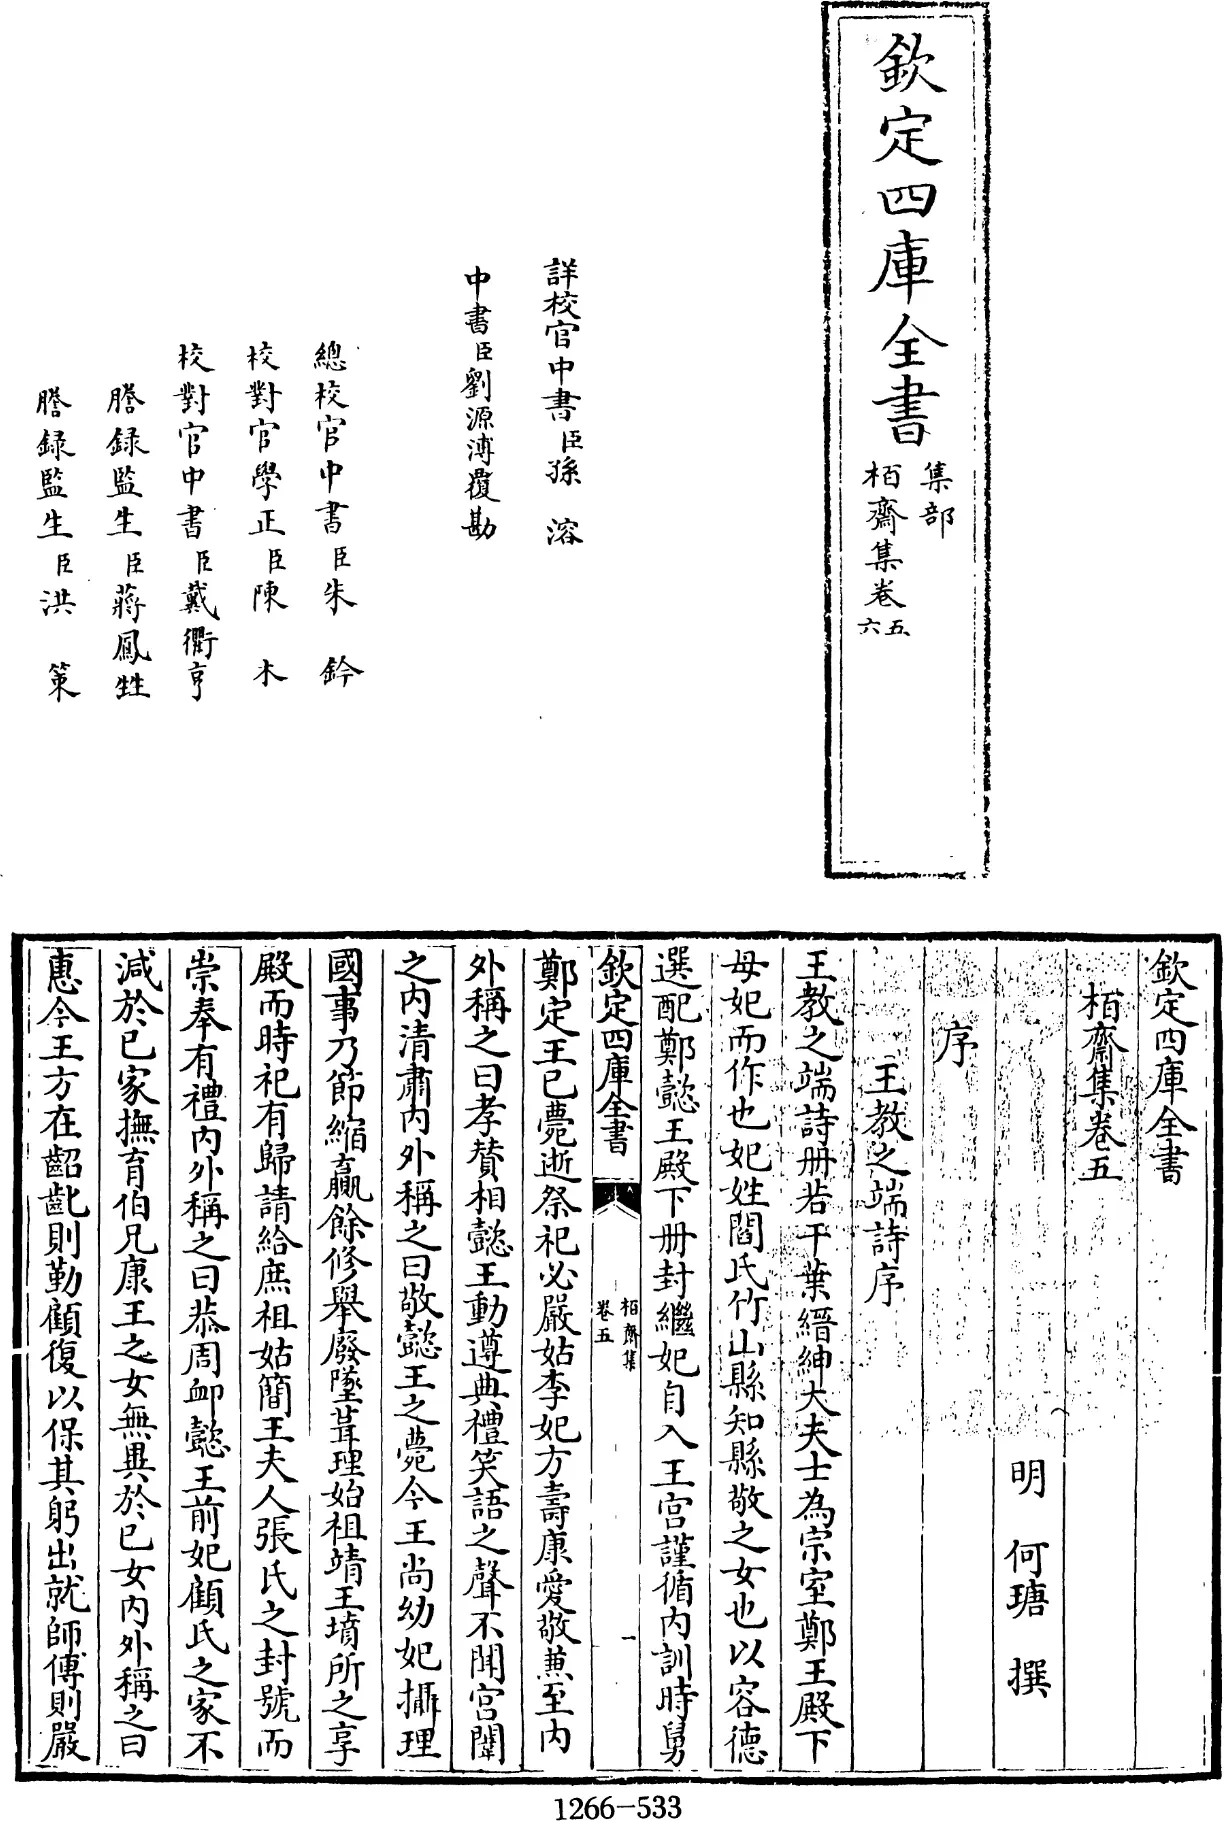 欽定四庫全書
集部
栢齋集卷五六
詳校官中書臣孫溶
中書臣劉源溥覆勘
總校官中書臣朱鈐
校對官學正臣陳木
校對官中書臣戴衢亨
謄録監生臣蔣鳳甡
謄録監生臣洪策
欽定四庫全書
栢齋集卷五
明 何瑭 撰
序
王教之端詩序
王教之端詩册若干葉縉紳大夫士為宗室鄭王殿下
母妃而作也妃姓閻氏竹山縣知縣敬之女也以容德
選配鄭懿王殿下册封繼妃自入王宫謹循内訓時舅
欽定四庫全書
栢齋集
卷五
一
鄭定王已薨逝祭祀必嚴姑李妃方壽康愛敬兼至内
外稱之曰孝贊相懿王動遵典禮笑語之聲不聞宫闈
之内清肅内外稱之曰敬懿王之薨今王尚幼妃攝理
國事乃節縮贏餘修舉廢墜葺理始祖靖王墳所之享
殿而時祀有歸請給庶祖姑簡王夫人張氏之封號而
崇奉有禮内外稱之曰恭周䘏懿王前妃顧氏之家不
減於已家撫育伯兄康王之女無異於已女内外稱之曰
惠今王方在齠齔則勤顧復以保其躬出就師傅則嚴
1266-533